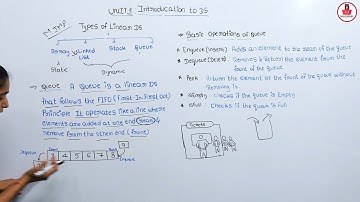 UNIT-1 Introduction to DS
M.IMP
Types of Linear DS
Array
Linked List
Stack
Queue
Static
Dynamic
→ Queue: A Queue is a linear DS
that follows the FIFO (First-In, First-Out)
Principle. It operates like a line where
elements are added at one end (Rear) &
remove from the other end (front)
4 5 6 7 8
9
→ Basic operations of Queue
Enqueue (Insert) Adds an element to the rear of the queue
Dequeue (Delete) Removes & Return the element from the
front of the queue
Peek : Return the element at the front of the queue without
Removing it
isEmpty : Checks if the queue is Empty
isFull : Checks if the queue is Full
Tickets